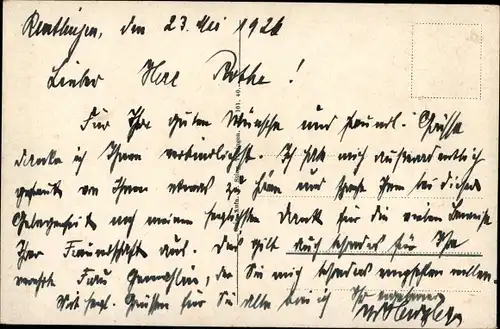 Reutlingen, den 23. Mai 1926
Lieber Herr Rothe!
Für Ihre guten Wünsche und freundl. Grüsse
danke ich Ihnen verbindlichst. Ich hab mich ausserordentlich
gefreut von Ihnen etwas zu hören und spreche Ihnen bei dieser
Gelegenheit auch meinen herzlichsten Dank für die vielen Beweise
Ihrer Freundschaft aus. Das gilt auch besonders für Ihre
verehrte Frau Gemahlin, der Sie mich besonders empfehlen wollen.
Mit herzl. Grüssen für Sie alle bin ich Ihr ergebener